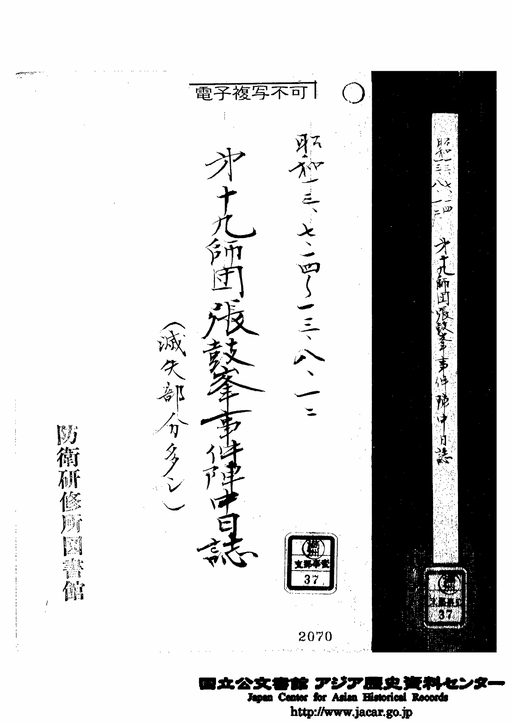 電子複写不可
昭和一三、七、一四〜一三、八、一二
第十九師団張鼓峯事件陣中日誌
(滅失部分多シ)
防衛研修所図書館
昭和一三、七、一四
八、一二
第十九師団張鼓峯事件陣中日誌
支那事変
37
37
2070
国立公文書館 アジア歴史資料センター
Japan Center for Asian Historical Records
http://www.jacar.go.jp